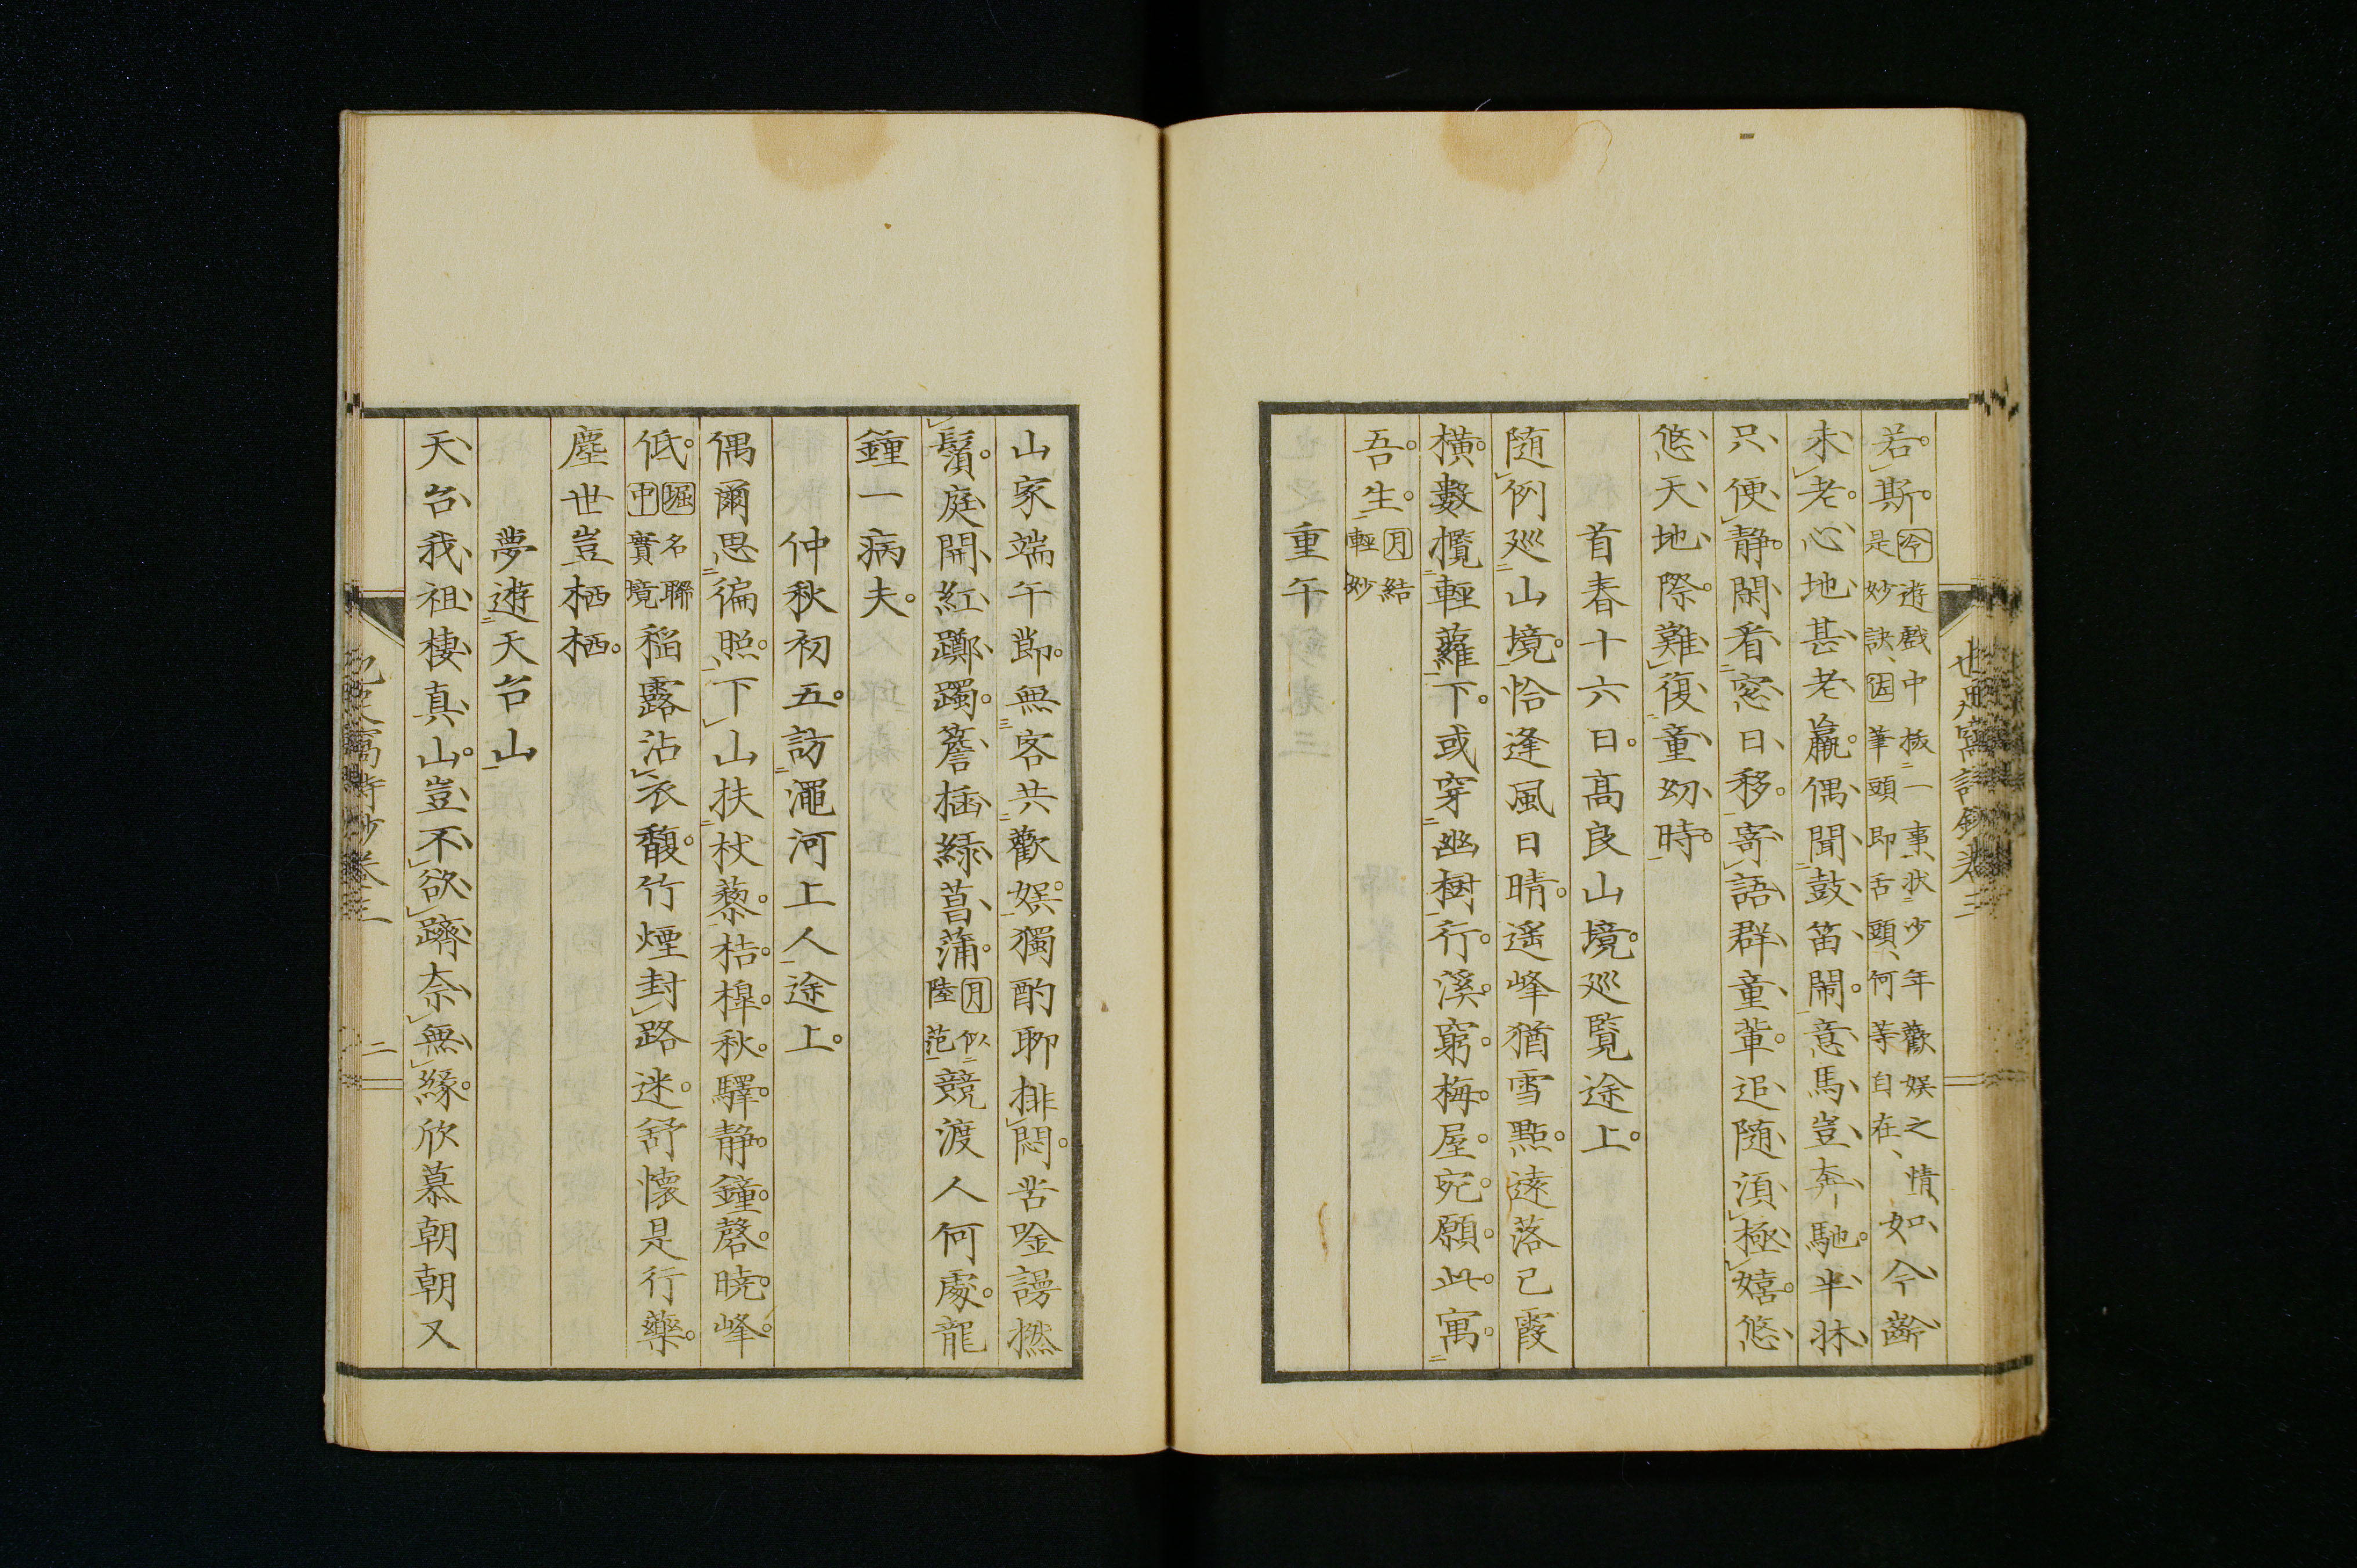 若斯 今遊戲中拔一事狀少年歡娯之情如今齡
是妙訣因筆頭即舌頭何等自在
未老心地甚老羸偶聞鼓笛鬧意馬豈奔馳半牀
只便静閑看窓日移寄語群童輩追随湏極嬉悠
悠天地際難復童㓜時
首春十六日高良山境廵覧途上
随例廵山境恰逢風日晴遥峰猶雪點遠落已霞
橫數攬輕蘿下或穿幽樹行溪窮梅屋宛願此寓
吾生 月結
輕妙
重午
山家端午莭無客共歡娯獨酌聊排悶苦唫謾撚
鬚庭開紅躑躅簷插緑菖蒲 月似
陸范 競渡人何處龍
鍾一病夫
仲秋初五訪灑河上人途上
偶爾思徧照下山扶杖藜桔槹秋驛静鐘磬曉峰
低 堀名聯
中實境 稲露沾衣馥竹煙封路迷舒懷是行藥
塵世豈栖栖
夢遊天台山
天台我祖棲真山豈不欲躋奈無緣欣慕朝朝又
窩詩鈔卷三
二